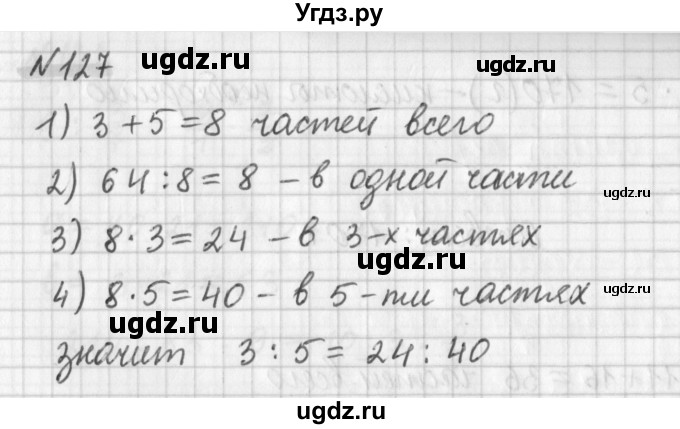 Угдз.ру
№127
ugdz.ru ugdz.ru
1) 3 + 5 = 8 частей всего
2) 64 : 8 = 8 - в одной части
ugdz.ru
3) 8 · 3 = 24 - в 3-х частях
ugdz.ru
4) 8 · 5 = 40 - в 5-ти частях
ugdz.ru
ugdz.ru
значит 3 : 5 = 24 : 40
ugdz.ru